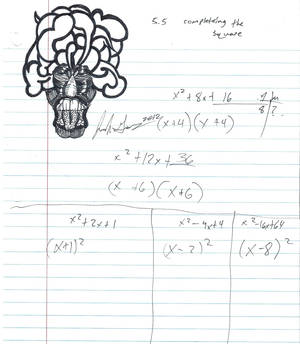 5.5 completeing the
square
x² + 8x + 16
(x+4)(x+4)
2012
x² + 12x + 36
(x+6)(x+6)
x² + 2x + 1
(x+1)²
x² - 4x + 4
(x-2)²
x² - 16x + 64
(x-8)²